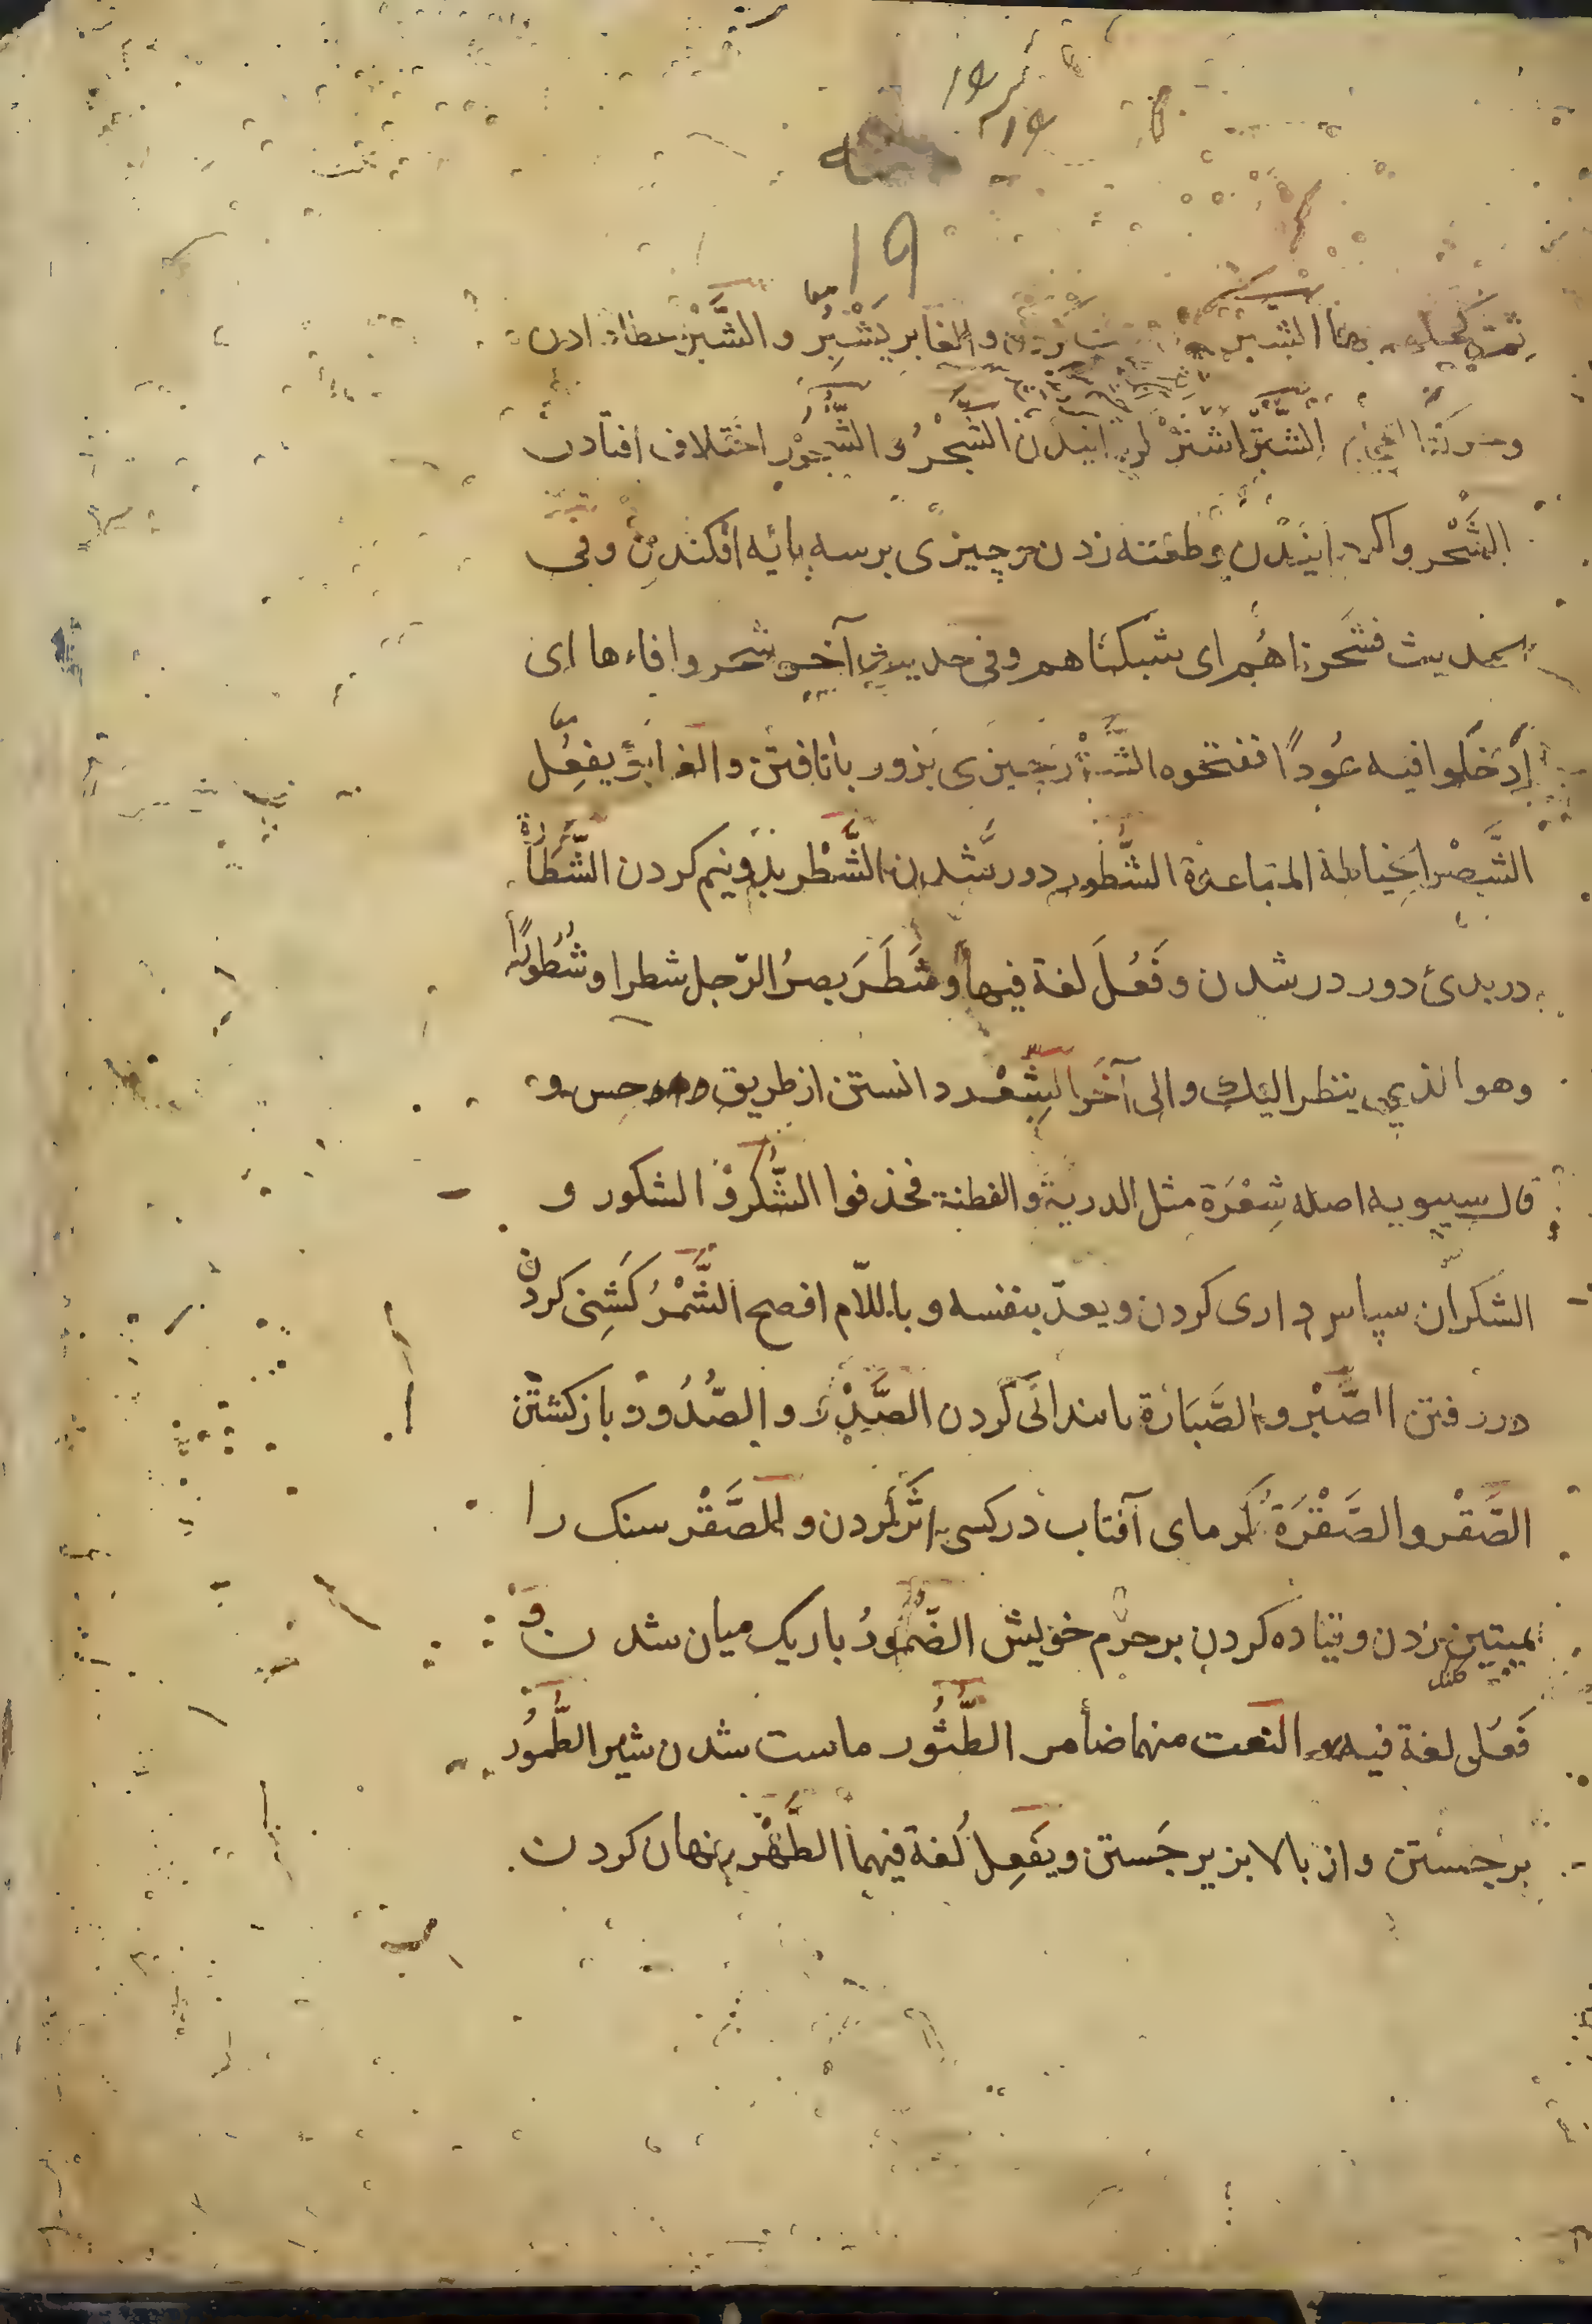 19
19
19
والغابر يَشْبِرُ معا والشَّبْر عطا دادن
الشَّتْر الشَّجْرُ و الشُّجُوْر اختلاف افتادن
الشَّجْر وا كردانيدن و طعنه زدن و چیزی بر سه پایه افکندن و فی
الحدیث فشَجَرناهُم ای شبکناهم و فی حدیث آخر شجروا فاءها ای
اِدْخَلوا فیه عُوداً ففتحوه الشَّزْر چیزی بزور باتافتن و الغابر یفعِل معا
الشَّصْر الخیاطة المتباعدة الشُّطُور دور شدن الشَّطْر بدو نیم کردن الشَّطَارة
دربدی دور در شدن و فَعُلَ لغة فیها و شَطَرَ بصرُ الرّجل شطرا و شُطُوراً
وهو الذي ینظر الیک و الی آخَر الشِّعْر دانستن از طریق حِس و
قال سیبویه اصله شِعْرَة مثل الدریة و الفطنة فحذفوا الشُّكر و الشكور و
الشكران سپاس داری کردن و یعدّ بنفسه و باللّام افصح الشَّمْرُ کَشِی کردن
در رفتن الصَّبْر و الصَّبَارَة بابندانی کردن الصَّدْر و الصُّدُور بازکشتن
الصَّقْر و الصَّقْرَة گرمای آفتاب در کسی اثر کردن و الصَّقْر سنک را
بمیتین زدن و بنیاده کردن بر حرم خویش الضُّمُورُ باریک میان شدن وَ
فَعُل لغة فیه و النعت منهما ضامر الطُّثُور ماست شدن شیر الطُّمُوُر
برجستن و از بالا بزیر جَستن و یَفعِل لُغة فیهما الطَّمْر پنهان کردن